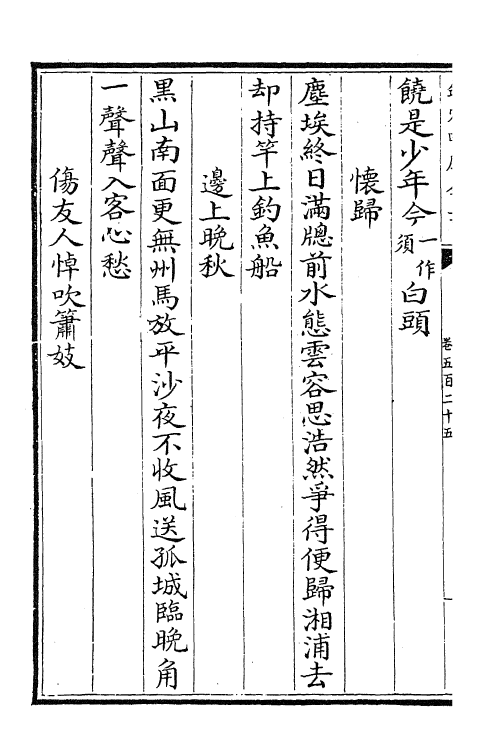 饒是少年今一作須白頭
懷歸
塵埃終日滿牕前水態雲容思浩然爭得便歸湘浦去
却持竿上釣魚船
邊上晚秋
黑山南面更無州馬放平沙夜不收風送孤城臨晚角
一聲聲入客心愁
傷友人悼吹簫妓
卷五百二十五